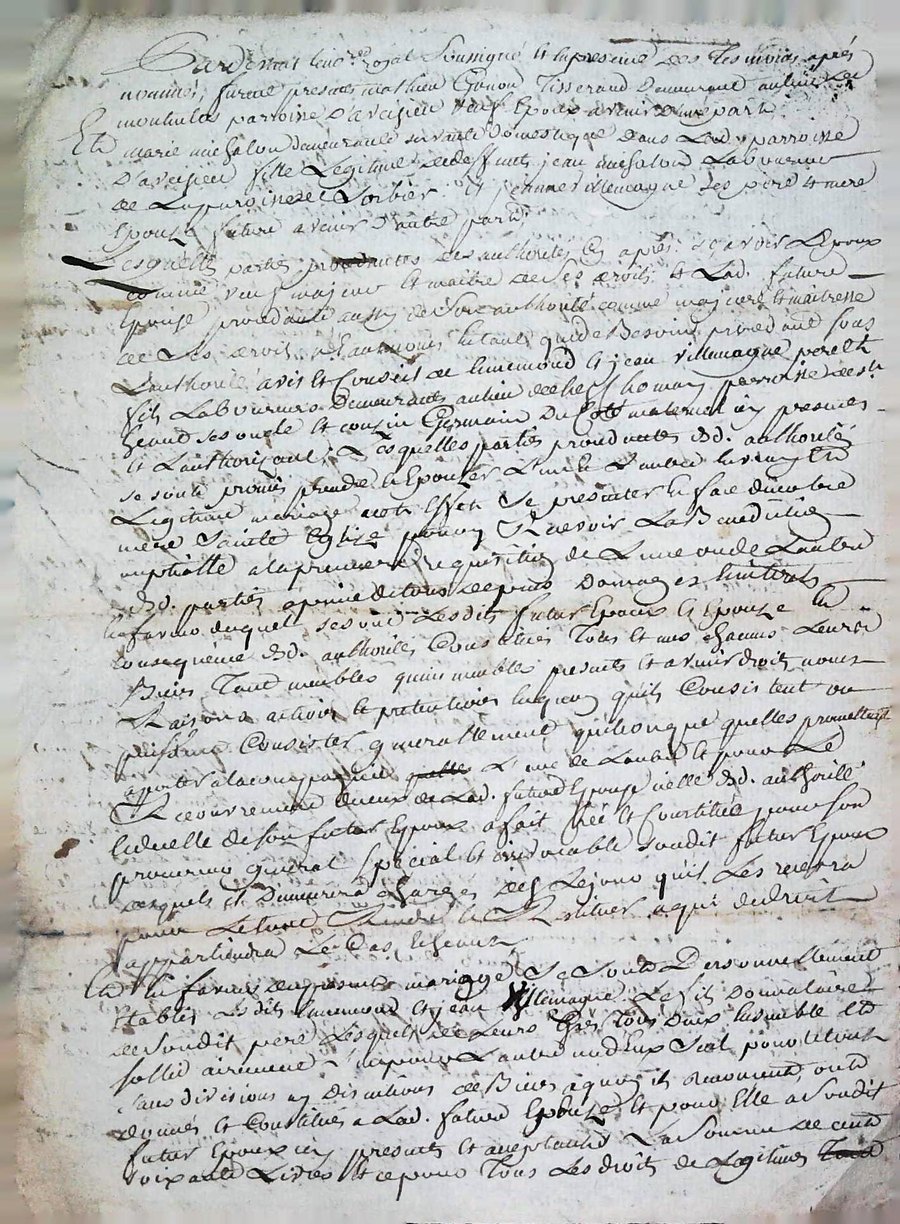 Pardevant le no.re royal Soussigné et en presence des Tesmoins après
nommés, furent presents mathieu Tisserand Demeurant au lieu des
parroisse D'aveisieu veuf Epoux avenir D'une part.
Et marie michalon demeurante servante Domestique Dans Lad. parroisse
D'aveisieu fille Légitime de deffunts jean michalon Laboureur
de La paroisse de Sorbier et jeanne villemagne ses pere et mere
Epouse future avenir D'autre part.
Lesquelles parties procedantes des authorités cy après, sçavoir L'Epoux
comme veuf majeur et maitre de ses droits et Lad. future
Epouse procedante aussy de son authorité comme majeure et maitresse
de ses droits, neanmoins en tant que de Besoin procedant sous
L'authorité avis et Conseils de ennemond et jean villemagne pere et
fils Laboureurs Demeurants au lieu de parroisse de st
heand ses oncle et cousin Germain Du Coté maternel icy presents
et L'authorisant; Lesquelles parties procedantes Esd. authorités
se sont promis prendre et Epouser L'une L'autre en vray et
Légitime mariage et à cet Effet Se presenter en face de notre
mere Sainte Eglise pour y Recevoir La Benediction
nuptialle a la premiere requisition de L'une ou de L'autre
Esd. parties a peine de tous depens Domages et interets
En faveur duquel se sont Lesdits futurs Epoux et Epouse En
consequence Esd. authorités Constitués Tous et uns chacuns Leurs
Biens Tant meubles qu'immeubles presents et avenir droits noms
Raisons actions et pretentions en quoy qu'ils Consistent ou
puissent Consister generallement quelconque quelles promettent
aporter a la compagnie L'une de L'autre et pour Le
Recouvrement de ceux de Lad. future Epouse icelle Esd. authorités
et de celle de son futur Epoux a fait créé et Constitué pour son
procureur general special et irrevocable sondit futur Epoux
desquels il Demeurera chargé dès Le jour qu'il Les recevra
pour Le tout Rendre et Restituer a qui de droit
appartiendra Le Cas Echeant
En faveur du present mariage Se Sont Personnellement
Etablis Lesdits ennemond et jean villemagne Le fils Donnataire
de Sondit pere Lesquels de Leurs Grés Tous Deux Ensemble et
sollidairement L'un pour L'autre un d'Eux Seul pour le tout
Sans division ny Discution de Biens a quoy ils renoncent, ont
donnés et Constitués a Lad. future Epouse et pour Elle a Sondit
futur Epoux icy presents et acceptants La Somme de cent
soixante Livres et ce pour Tous Les droits de Légitimes